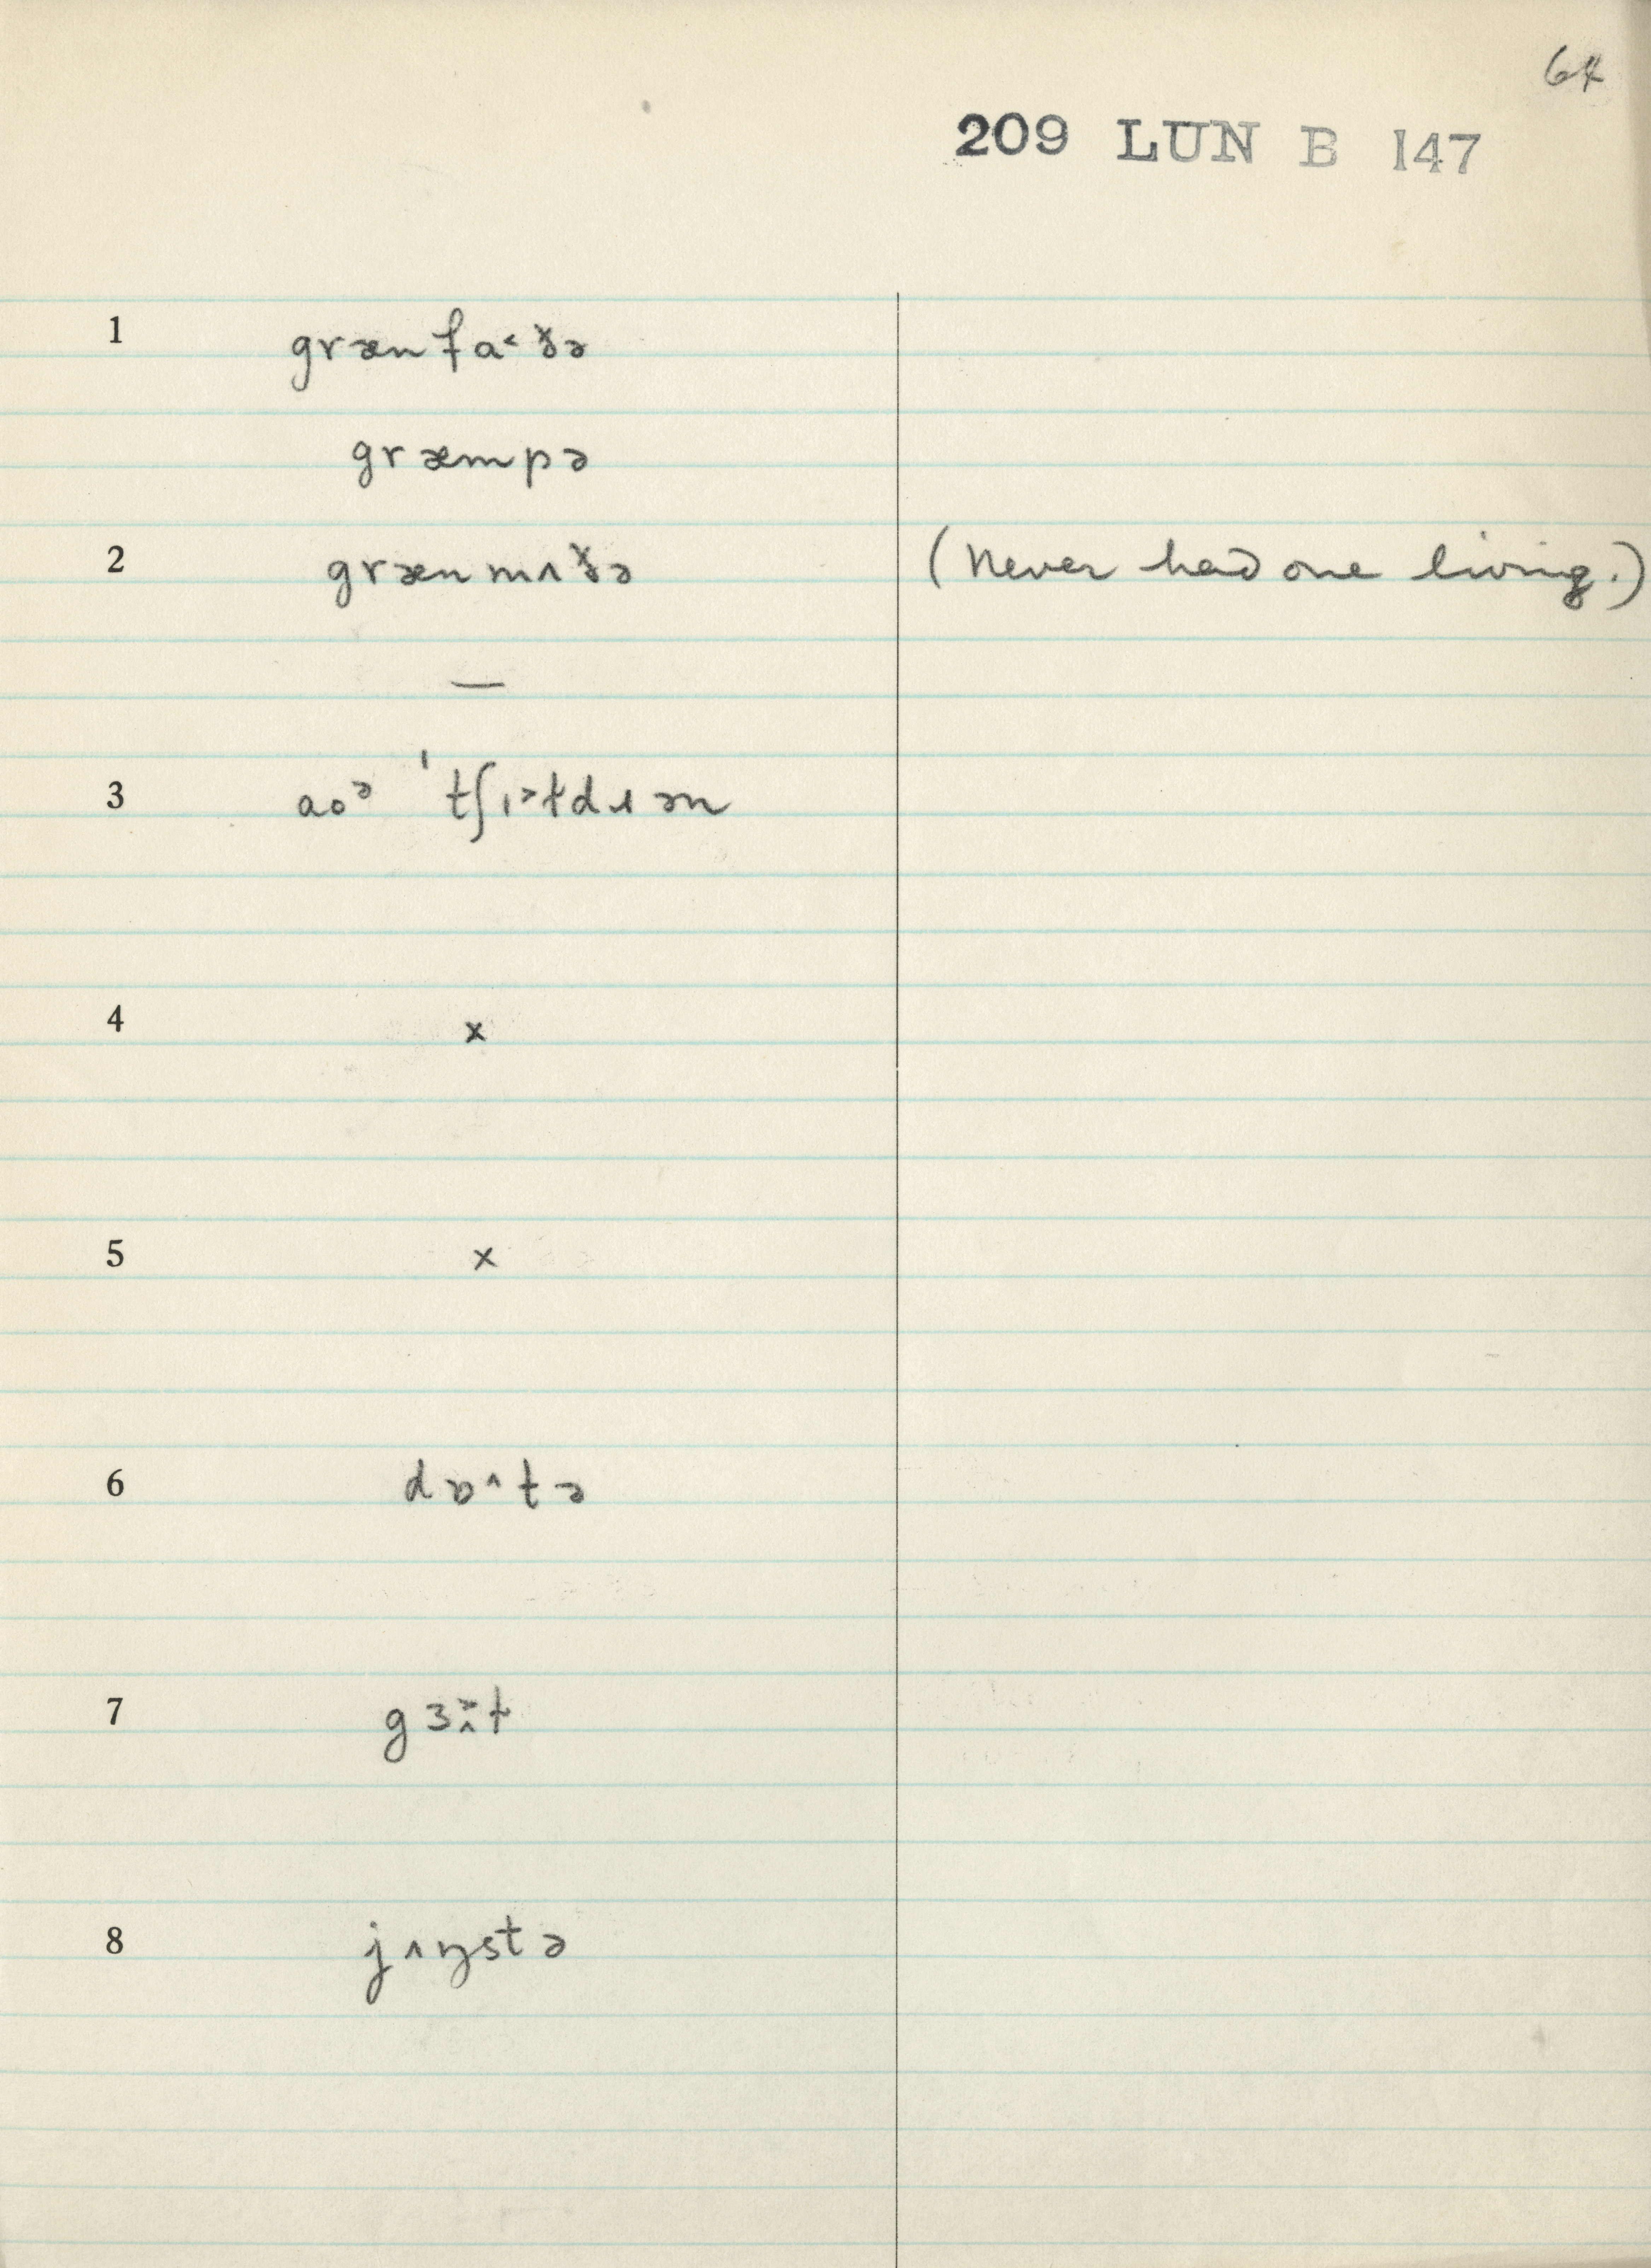 64
209 LUN B 147
1 græn fa˂ ðə
græmpə
2 græn mʌðə (Never had one living.)
—
3 aoᵊ ˈtʃɪ˃ɫdɹən
4 x
5 x
6 dɒ^tə
7 gɜ:ɫ
8 jʌŋstə